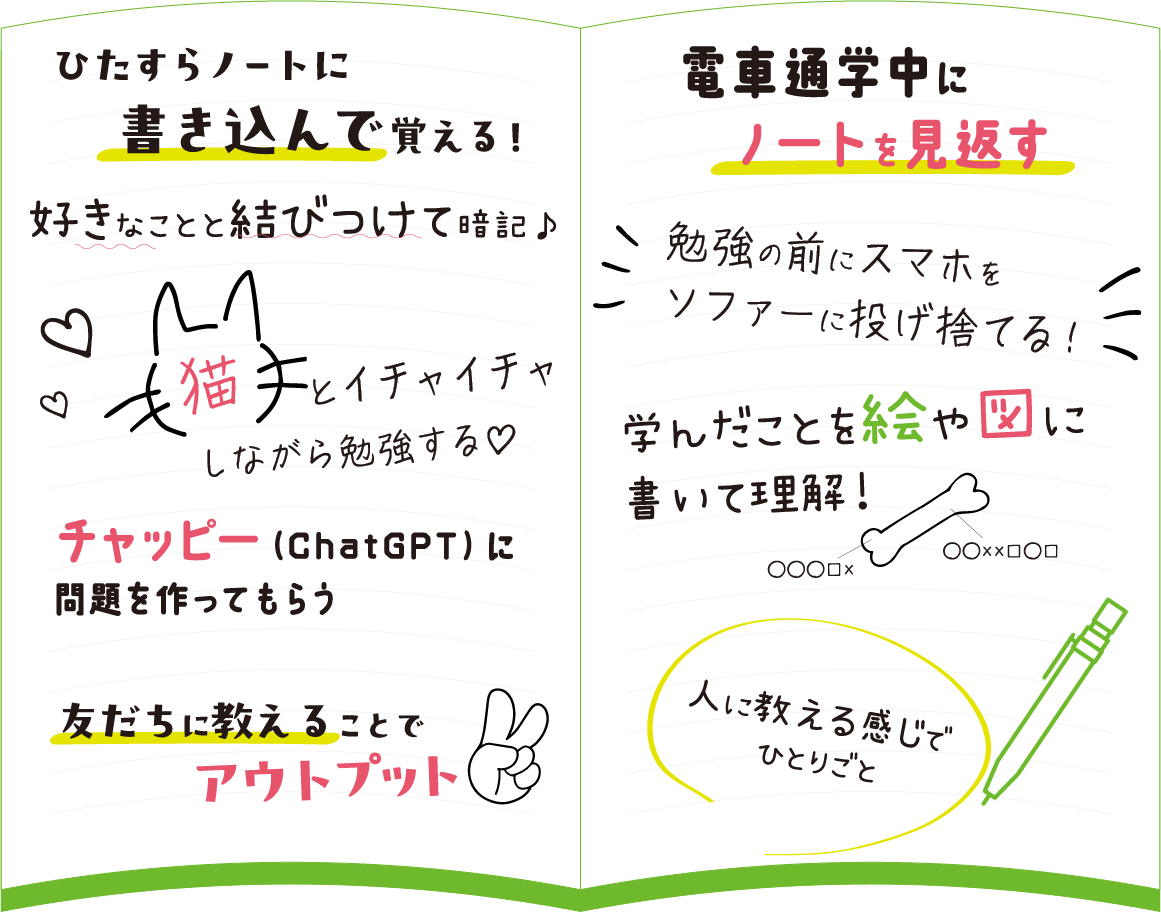 ひたすらノートに
書き込んで覚える!
好きなことと結びつけて暗記♪
猫とイチャイチャ
しながら勉強する♡
チャッピー(ChatGPT)に
問題を作ってもらう
友だちに教えることで
アウトプット
電車通学中に
ノートを見返す
勉強の前にスマホを
ソファーに投げ捨てる!
学んだことを絵や図に
書いて理解!
○○○□×
○○××□○□
人に教える感じで
ひとりごと